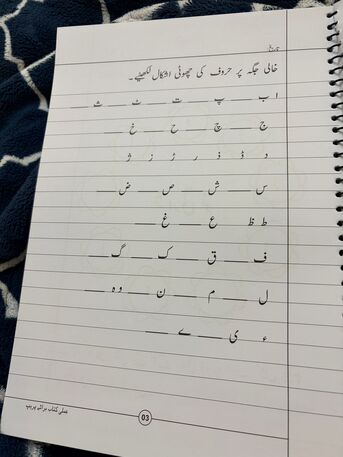 تاریخ:
خالی جگہ پر حروف کی چھوٹی اشکال لکھیئے۔
ا ب ____ پ ____ ت ____ ٹ ____ ث ____
ج ____ چ ____ ح ____ خ ____
د ڈ ذ ر ڑ ز ژ
س ____ ش ____ ص ____ ض ____
ط ظ ع ____ غ ____
ف ____ ق ____ ک ____ گ ____
ل ____ م ____ ن ____ و ہ ____
ء ی ____ ے ____
03
عملی کتاب برائے پریپ